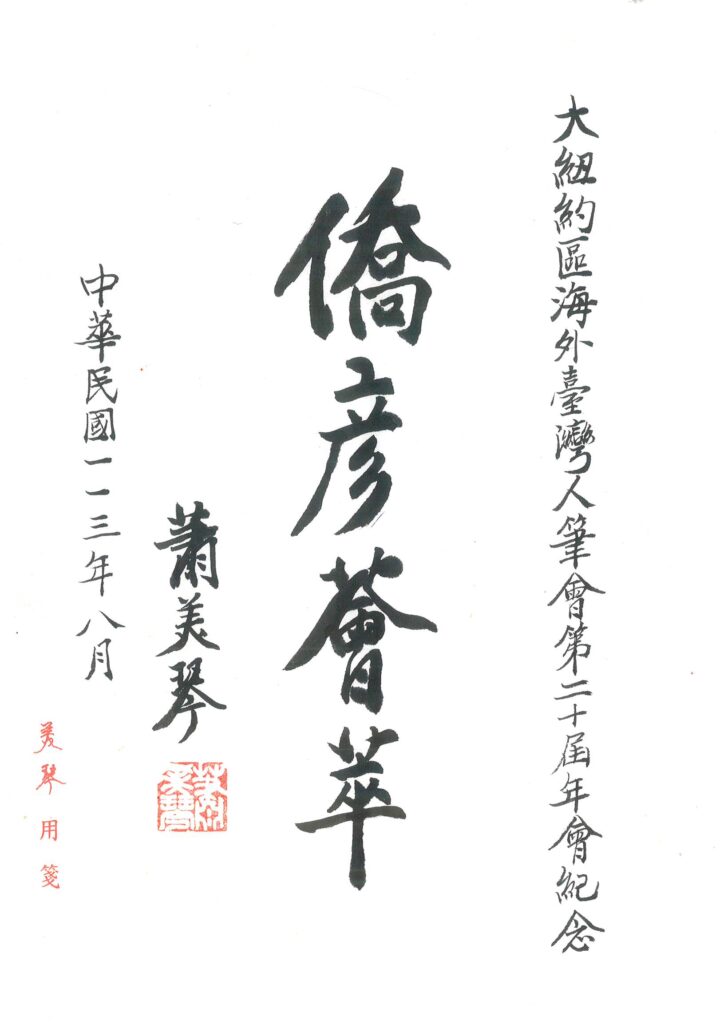 大紐約區海外臺灣人筆會第二十屆年會紀念
僑彥薈萃
蕭美琴
中華民國一一三年八月
美琴用箋